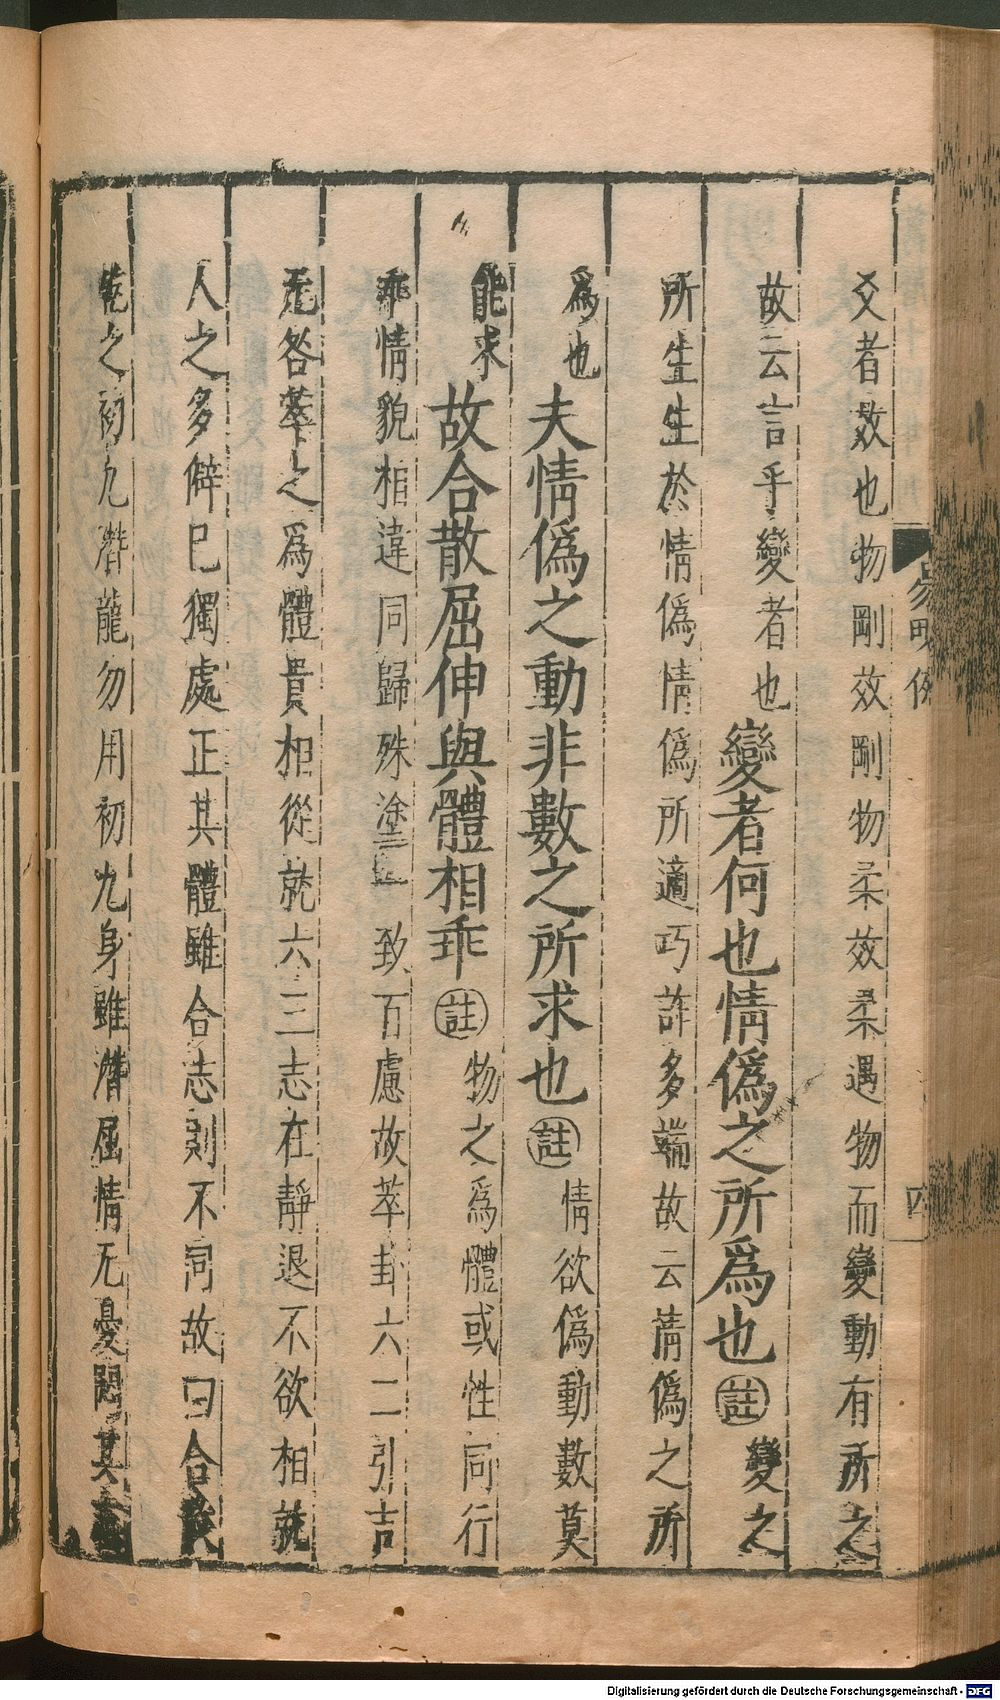 易畧例
四
爻者效也物剛效剛物柔效柔遇物而變動有所之
故云言乎變者也變者何也情偽之所爲也註變之
所生生於情偽情偽所適巧詐多端故云情偽之所
爲也夫情偽之動非數之所求也註情欲偽動數莫
能求故合散屈伸與體相乖註物之爲體或性同行
乖情貌相違同歸殊塗一致百慮故萃卦六二引吉
无咎萃之爲體貴相從就六二志在靜退不欲相就
人之多僻巳獨處正其體雖合志則不同故曰合散
乾之初九潛龍勿用初九身雖潛屈情无憂悶其志
Digitalisierung gefördert durch die Deutsche Forschungsgemeinschaft - DFG